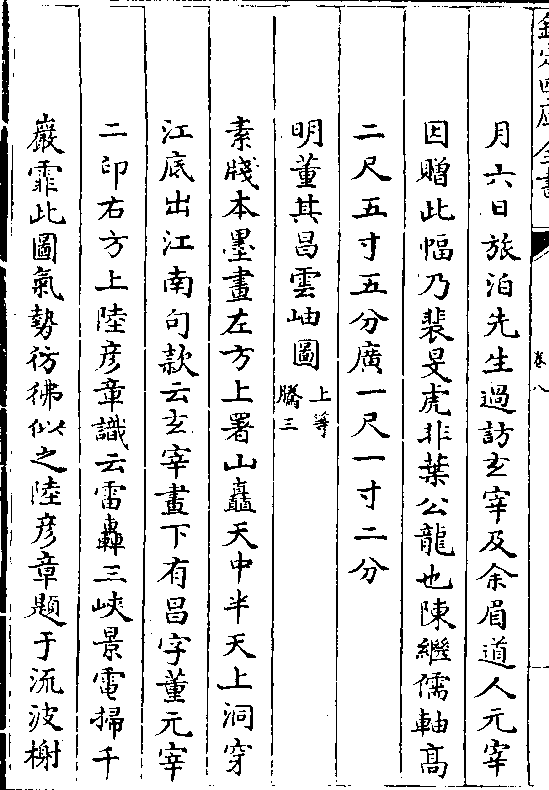 欽定四庫全書
卷八
月六日旅泊先生過訪玄宰及余眉道人元宰
因贈此幅乃裴旻虎非葉公龍也陳繼儒軸高
二尺五寸五分廣一尺一寸二分
明董其昌雲岫圖上等
騰三
素牋本墨畫左方上署山矗天中半天上洞穿
江底出江南句款云玄宰畫下有昌字董元宰
二印右方上陸彥章識云雷轟三峽景電掃千
巖霏此圖氣勢彷彿似之陸彥章題于流波榭